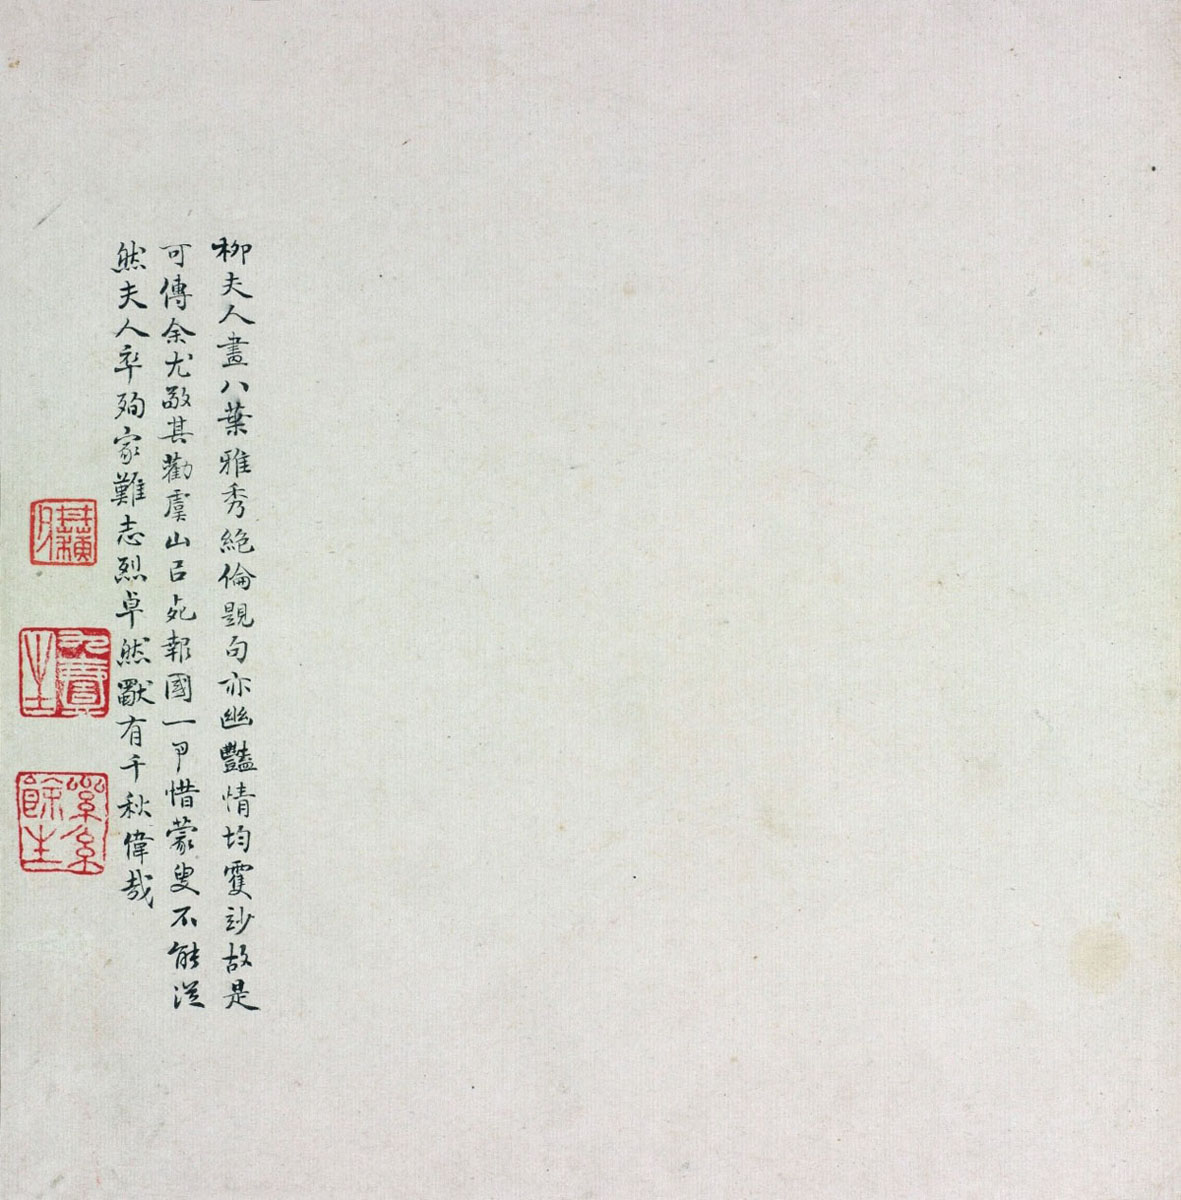 柳夫人畫八葉雅秀絕倫題句亦幽豔情均䨇玅故是
可傳余尤敬其勸虞山㠯死報國一事惜蒙叟不能從
然夫人卒殉家難志烈卓然獨有千秋偉哉
餘生